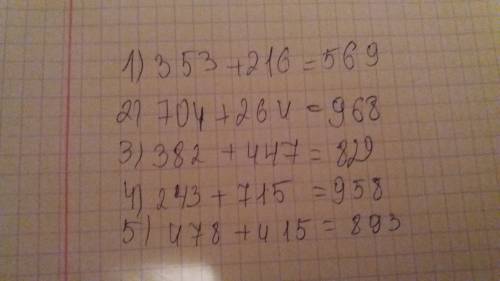 1) 353 + 216 = 569
2) 704 + 264 = 968
3) 382 + 447 = 829
4) 243 + 715 = 958
5) 478 + 415 = 893